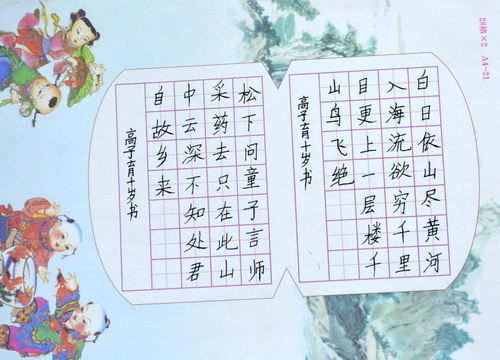 28格×2 A4-21
白日依山尽黄河
入海流欲穷千里
目更上一层楼千
山鸟飞绝
高子育十岁书
松下问童子言师
采药去只在此山
中云深不知处君
自故乡来
高子育十岁书